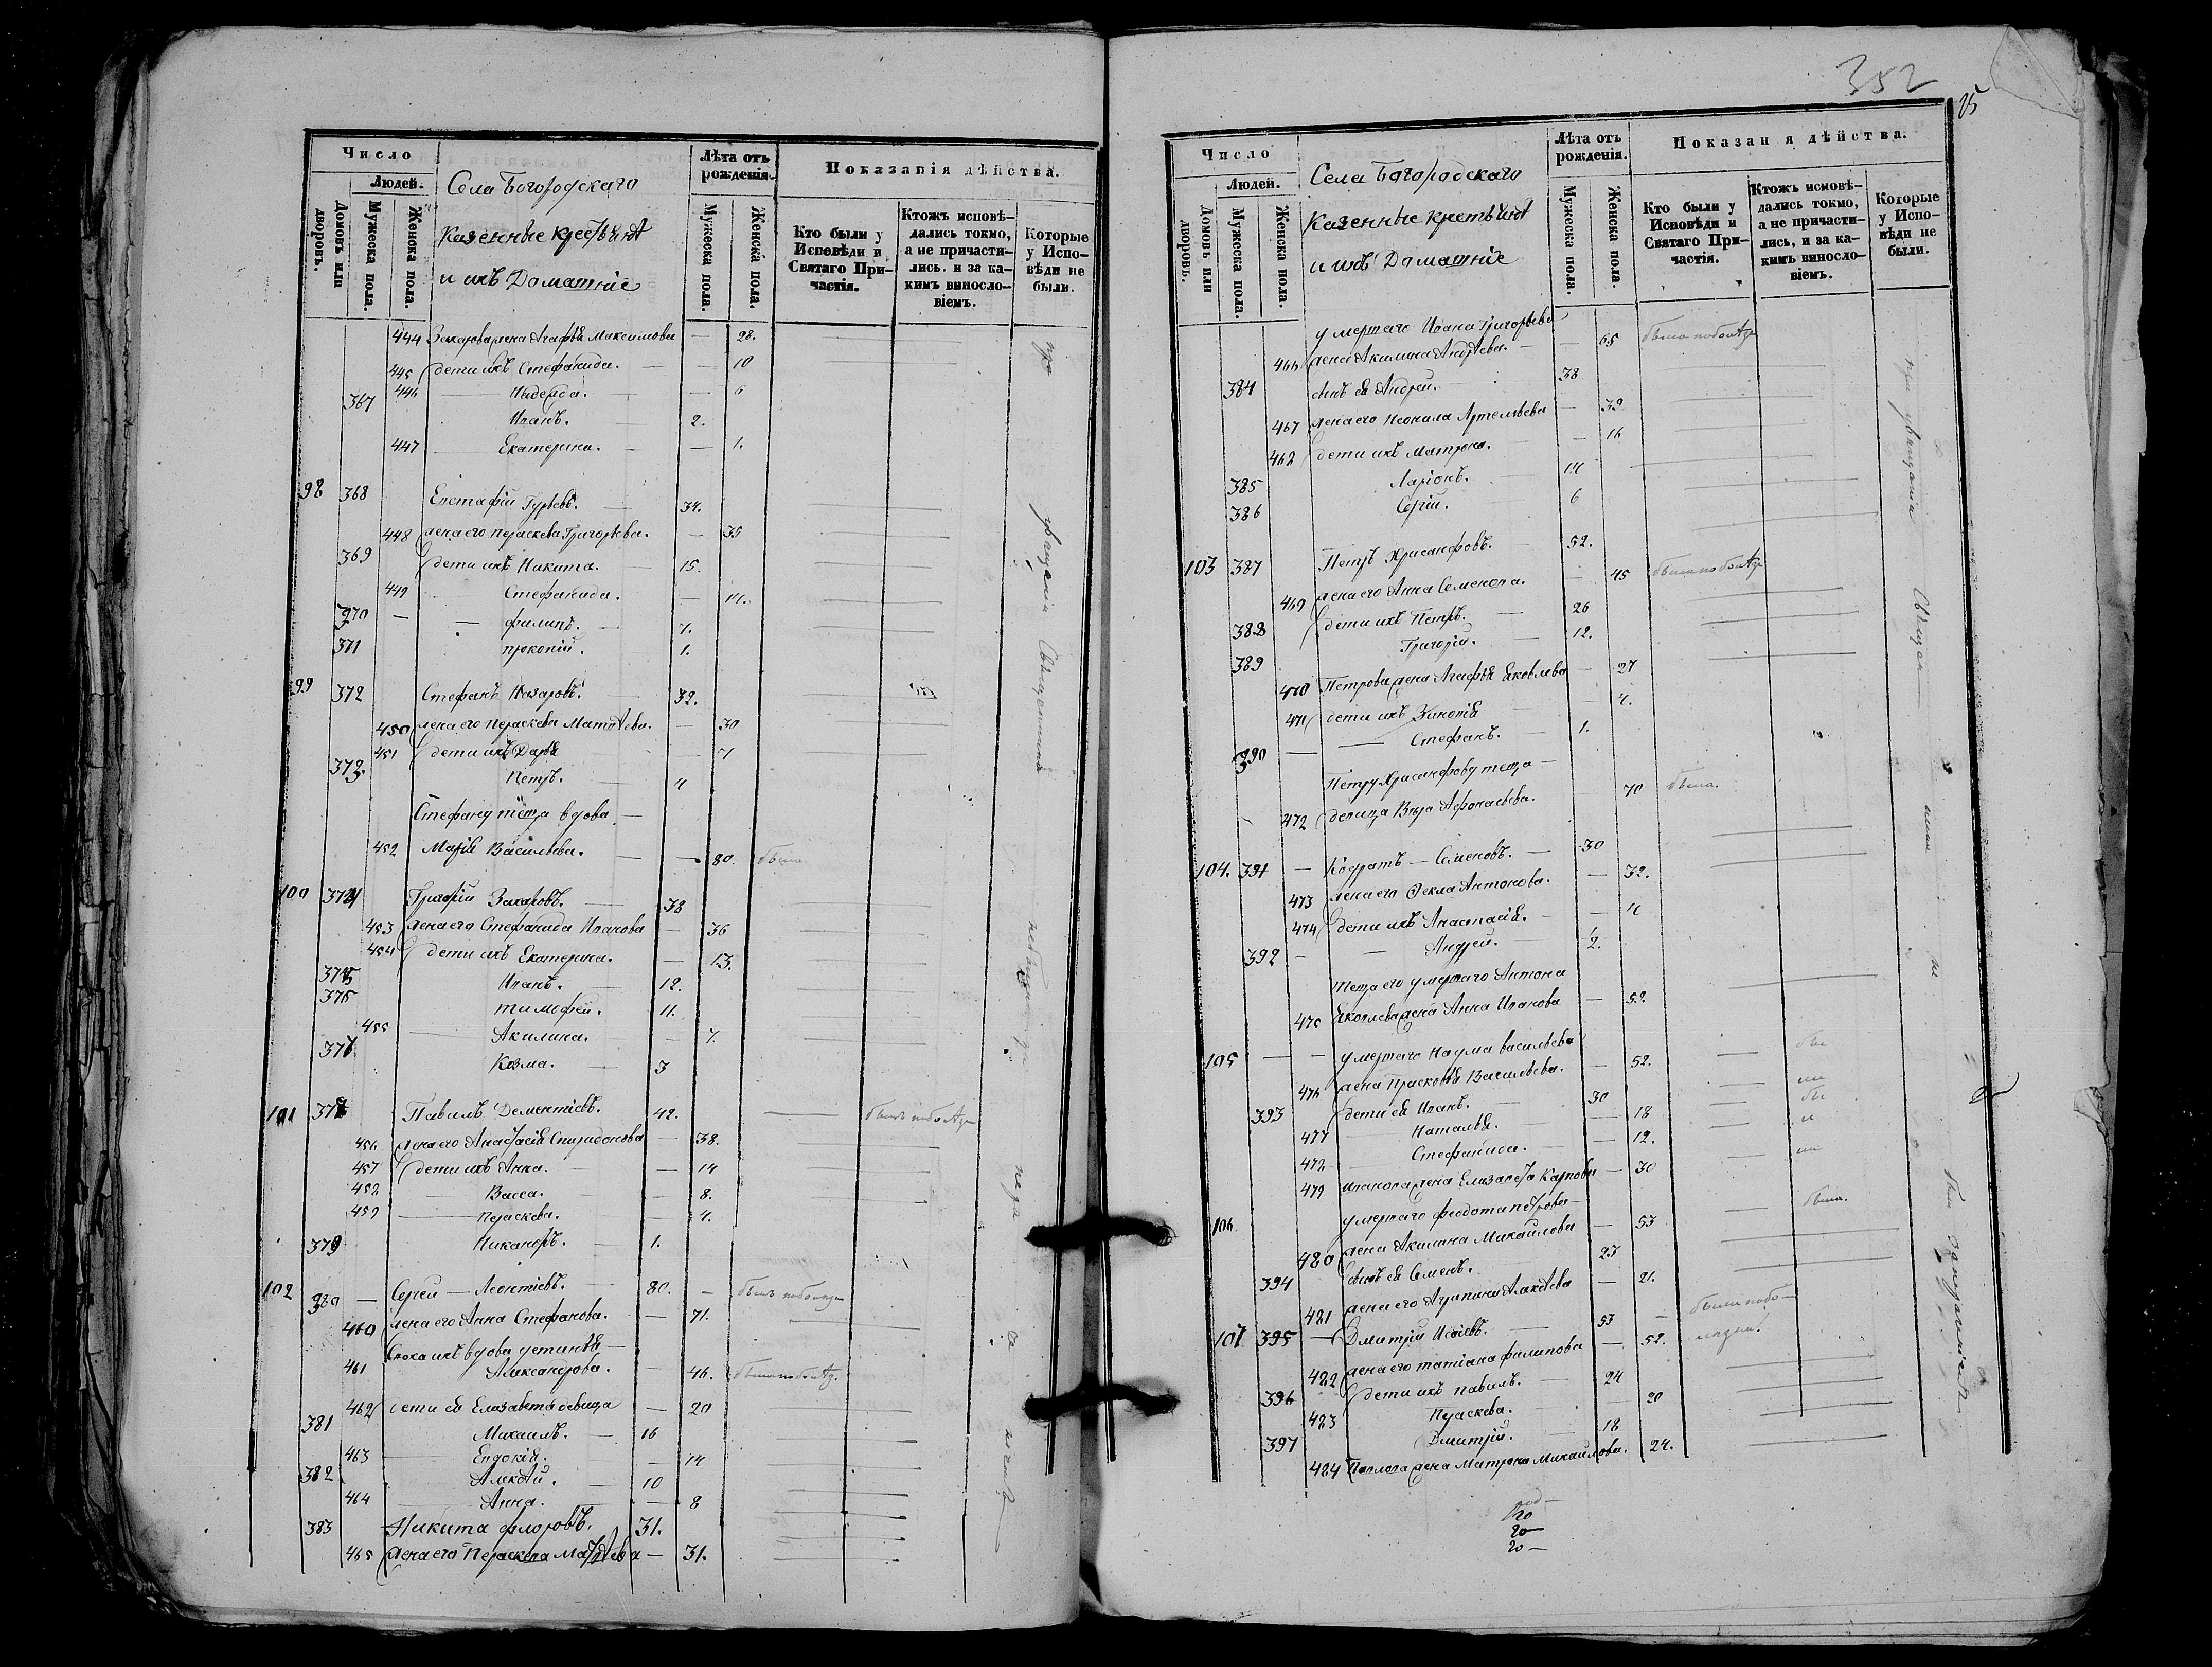 Число
Людей.
Домовъ или дворовъ.
Мужеска пола.
Женска пола.
Села Богородскаго
Казенные крестьянѣ
и ихъ Доматніе
Лѣта отъ рожденія.
Мужеска пола.
Женска пола.
Показанія дѣйства.
Кто были у Исповѣди и Святаго Причастія.
Ктожъ исповѣдались токмо, а не причастились. и за какимъ винословіемъ.
Которые у Исповѣди не были.
444 Захарова жена Агафья Максимова — 28.
445 дети ихъ Стефанида. — 10
446 — 6
367 Иванъ. 2.
447 Екатерина. — 1.
98 368 Евстафій Гурьевъ. 34.
448 жена его Пераскева Григорьева. — 35
369 дети ихъ Никита. 15.
449 Стефанида. — 14.
370 — — филипъ. 7.
371 прокопій. 1.
99 372 Стефанъ Назаровъ. 32.
450 жена его Пераскева Матвѣева. — 30
451 дети ихъ Дарья — 7
373. Петръ. 4
Стефану тёща вдова —
452 Марія Васильева. — 80. была
100 374 Григорій Захаровъ. 38
453 жена его Стефанида Иванова — 36
454 дети ихъ Екатерина. — 13.
375 Иванъ. 12.
376 тимофеи. 11.
455 Акилина. — 7.
377 Козма. 3
101 378 Павилъ Дементіевъ. 42.
456 жена его Анастасія Спиридонова — 38.
457 дети ихъ Анна. — 14
458 Васса. — 8.
459 Пераскева. — 4.
379 Никаноръ. 1.
102 380 — Сергей — Леонтіевъ. 80. —
460 жена его Анна Стефанова. — 71.
Сноха ихъ вдова устинья —
461 Александрова. — 46.
462 дети ея Елизавета девица — 20
381 Михаилъ. — 16
463 Евдокія. — 14
382 Алексѣй. — 10
464 Анна. — 8
383 Никита флоровъ. 31.
465 жена его Пераскева Матвѣева — 31.
352
25
Число
Людей.
Домовъ или дворовъ.
Мужеска пола.
Женска пола.
Села Богородскаго
Казенные кретьянѣ
и ихъ Доматніе
Лѣта отъ рожденія.
Мужеска пола.
Женска пола.
Показан я дѣйства.
Кто были у Исповѣди и Святаго Причастія.
Ктожъ исповѣдались токмо, а не причастились, и за какимъ винословіемъ.
Которые у Исповѣди не были.
умершаго Ивана Григорьева
466 жена Акилина Андрѣева. — 65
384 сынъ ея Андрей. 38
467 жена его Неонила Артемьева — 39
468 дети ихъ Матрона. — 16
385 Ларіонъ. 14
386 Сергіи. 6
103 387 Петръ Хрисанфовъ. 52.
469 жена его Анна Семенова. — 45
388 дети ихъ Петръ. 26
389 Григорій. 12.
470 Петрова жена Агафья Яковлева — 27
471 дети ихъ Зиновія 4.
390 — — Стефанъ. 1.
Петру Хрисанфову теща —
472 девица Вера Афонасьева. 70 была.
104. 391 — Кодратъ — Семеновъ. — 30
473 жена его Фекла Антонова. — 32.
474 дети ихъ Анастасія. — 4
392 — — Андрей. — 2.
теща его умершаго Антона
475 Яковлева жена Анна Иванова — 52.
105 — — умершаго Наума васильева
476 жена Прасковья Васильева. — 52.
393 дети ея Иванъ. — 30
477 Наталья. — 18
478 Стефанида. — 12.
479 Иванова жена Елизавета Карпова — 30
106 умершаго феодота петрова —
480 жена Акилина Михаилова — 53 была.
394 Сынъ ея Семенъ. 23
481 жена его Агрипина Алексѣева — 21.
107 395 — Дмитріи Исаіевъ. 53 —
482 жена его татіана филипова — 52.
396 дети ихъ павилъ. — 24
483 Пераскева. 20
397 Дмитріи. 18
484 Павлова жена Матрона Михаилова. 24.
20
20 —
20 —